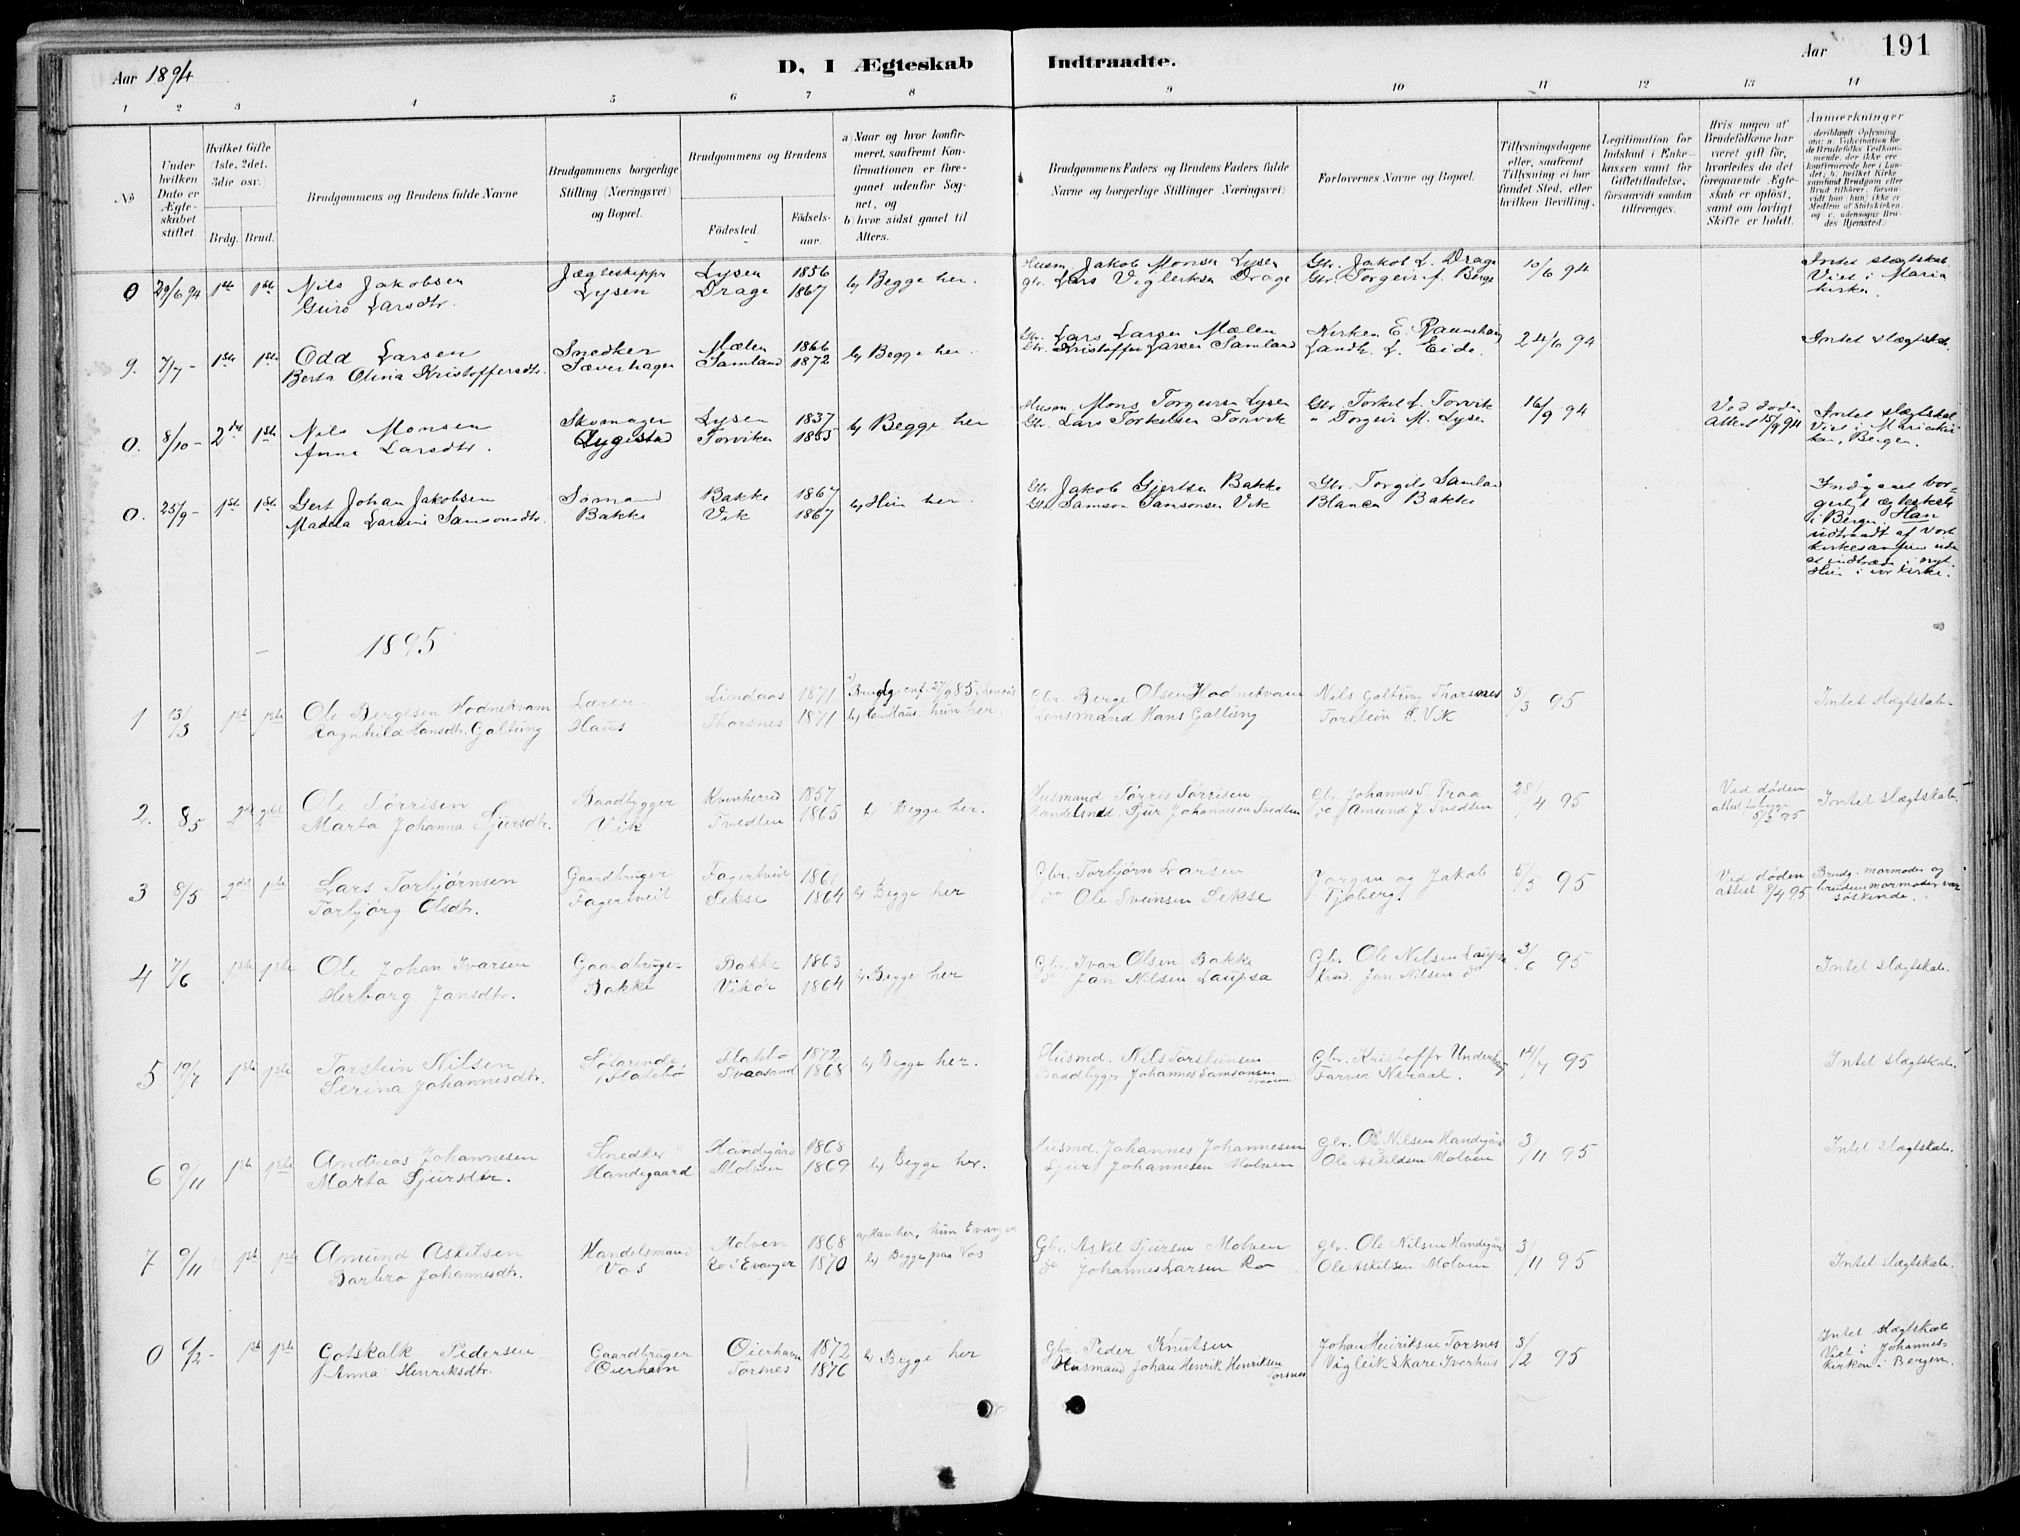 Aar 1894
D, I Ægteskab Indtraadte.
Aar 191
1 2 3 4 5 6 7 8 9 10 11 12 13 14
No
Under hvilken Dato er Ægteskabet stiftet
Hvilket Gifte (1ste, 2det, 3die osv.
Brdg. Brud.
Brudgommens og Brudens fulde Navne
Brudgommens borgerlige Stilling (Næringsvei) og Bopæl.
Brudgommens og Brudens
Födested.
Födselsaar.
a) Naar og hvor konfirmeret, saafremt Konfirmationen er foregaaet udenfor Sognet, og
b) hvor sidst gaaet til Alters.
Brudgommens Faders og Brudens Faders fulde Navne og borgerlige Stillinger (Næringsvei)
Forlovernes Navne og Bopæl.
Tillysningsdagene eller, saafremt Tillysning ei har fundet Sted, efter hvilken Bevilling.
Legitimation for Indskud i Enkekassen samt for Giftetilladelse, forsaavidt saadan tiltrænges.
Hvis nogen af Brudefolkene har været gift för, hvorledes da det foregaaende Ægteskab er oplöst, samt om lovligt Skifte er holdt.
Anmærkninger
0 29/6 94 1ste 1ste Nils Jakobsen Jægteskipper Lysen 1856 b) Begge her. Husm. Jakob Monsen Lysen Gbr. Jakob L. Drage 10/6 94 Intet slægtskab.
Guro Larsdtr. Lysen Drage 1867 Gbr. Lars Vigleiksen Drage Gbr. Torgeir J. Berge Viet i Maria kirken.
9. 7/7 - 1ste 1ste Odd Larsen Snedker Mælen 1866 b) Begge her. Gbr. Lars Larsen Mælen Kirkes. E. 24/6 94 Intet slægtskab.
Berta Olina Kristoffersdtr. Sæverhagen Samland 1872 Gbr. Kristoffer Larsen Samland Landh. L. Eide
0. 8/10 - 2det 1ste Nils Monsen Skomager Lysen 1837 b) Begge her Husm. Mons Torgeirsen Lysen Gbr. Torkel L. Torvik 16/9 94 Ved døden Intet slægtskab
Anna Larsdtr. Lygestad Torviken 1855 Gbr. Lars Torkelsen Torvik " Torgeir M. Lysen Attest 15/9 94 Viet i Mariakirken, Bergen.
0. 25/9 - 1ste 1ste Gert Johan Jakobsen Sømand Bakke 1867 b) Hun her. Gbr. Jakob Gjertsen Bakke Gbr. Torgils Samland Indgaaet borgerligt ægteskab
Madela Larsine Samsonsdtr. Bakke Vik 1867 Gbr. Samson Samsonsen Vik Bakke i Bergen. Han udtraadt af vort kirkesamfun uden at indtræde i nyt. Hun i vor kirke.
1895
1 13/3 1ste 1ste Ole Bergesen Hodnekvam Lærer Lindaas 1871 a) Brudg. conf. 27/9 85 Gbr. Berge Olsen Hodnekvam Nils Galtung Thorsnes 3/3 95 Intet slægtskab.
Ragnhild Hansdtr. Galtung Haus Thorsnes 1871 b) Han Haus, hun her. Lensmand Hans Galtung Torstein S. Vik
2. 8/5 2det 2det Ole Tørrisen Baadbygger Kvinherred 1857 b) Begge her. Husmand Tørris Tørrisen Gbr. Johannes T. Traa 28/4 95 Ved døden Intet slægtskab.
Marta Johanna Sjursdtr. Vik Tvedten 1865 Handelsmd. Sjur Johannesen Tvedten do Amund J Tvedten
3 8/5 2det 1ste Lars Torbjørnsen Gaardbruger Fagertveit 1861 b) Begge her Gbr. Torbjørn Larsen Jørgen og Jakob 5/5 95 Ved døden Brudg. mormoder og
Torbjørg Olsdtr. Fagertveit Sekse 1864 do Ole Svensen Sekse Tjoberg. attest 8/4 95 brudens mormoder var søskende.
4 7/6 1ste 1ste Ole Johan Ivarsen Gaardbruger Bakke 1863 b) Begge her Gbr. Ivar Olsen Bakke Gbr. Ole Nilsen Laupsa 3/6 95 Intet slægtskab.
Herborg Jansdtr. Bakke Vikør 1864 do Jan Nilsen Laupsa Jan Nilsen do
5 19/7 1ste 1ste Torstein Nilsen Flatebø 1872 b) Begge her. Husmd. Nils Torsteinsen Gbr. Kristoffr 14/7 95 Intet slægtskab.
Serina Johannesdtr. Flatebø Svaasand 1868 Baadbygger Johannes Samsonsen Svaasand Farver Neraal.
6 9/11 1ste 1ste Andreas Johannesen Snedker Handegård 1868 b) Begge her. Husmd. Johannes Johannesen Gbr. Ole Nilsen Handegård 3/11 95 Intet slægtskab.
Marta Sjursdtr. Handegaard Molven 1869 Sjur Johannesen Molven Ole Askildsen Molven
7 9/11 1ste 1ste Amund Askilsen Handelsmand Molven 1868 a) Han her, hun Evanger Gbr. Askil Sjursen Molven Gbr. Ole Nilsen Handegård 3/11 95 Intet slægtskab.
Barbro Johannesdtr. Vos Ro i Evanger 1870 b) Begge paa Vos do Johannes Larsen Ro Ole Askilsen Molven
0 6/2 - 1ste 1ste Gotskalk Pedersen Gaardbruger Oierhavn 1872 b) Begge her Gbr. Peder Knutsen Johan Heinriksen Torsnes 3/2 95 Intet slægtskab
Anna Henriksdtr. Oierhavn Torsnes 1876 Husmand Johan Henrik Henriksen Torsnes Vigleik Skare Iverhus Viet i Johanneskirken i Bergen.